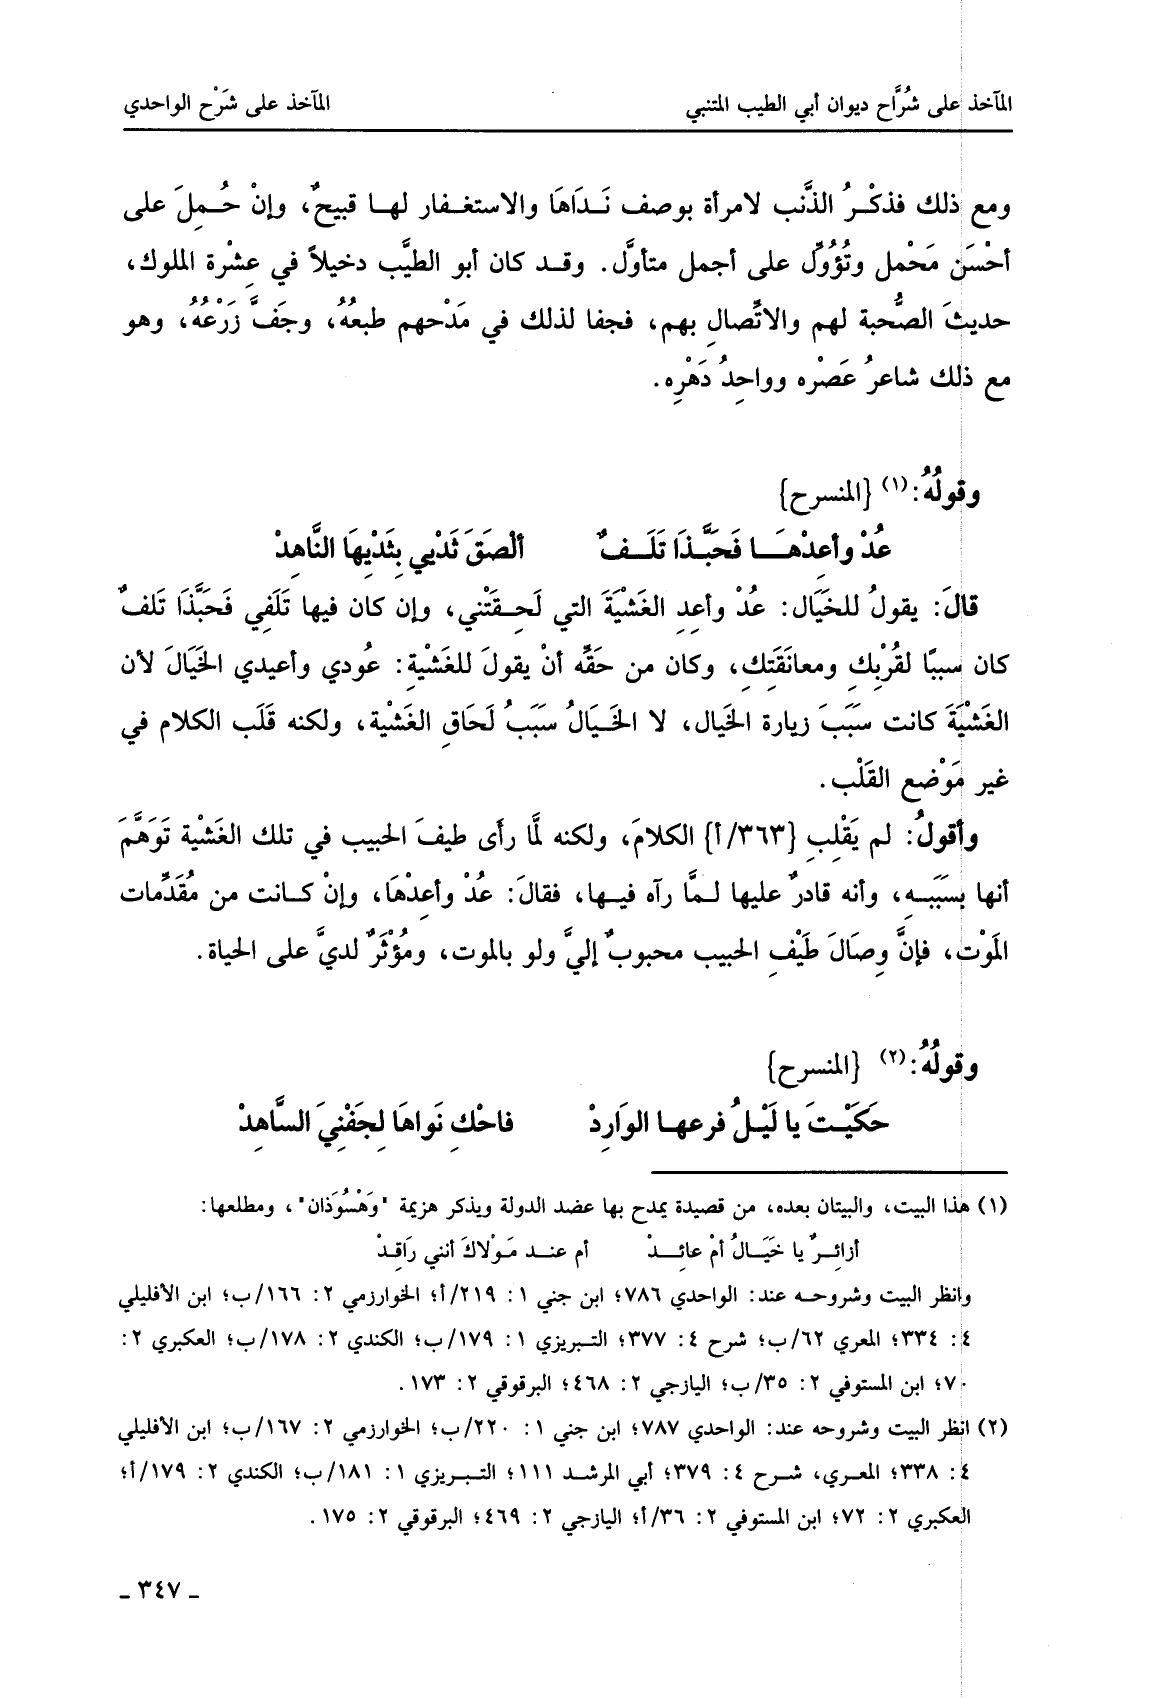 المآخذ على شُرَّاح ديوان أبي الطيب المتنبي المآخذ على شَرْح الواحدي
ومع ذلك فذكْرُ الذَّنب لامرأة بوصف نَدَاهَا والاستغفار لها قبيحٌ، وإنْ حُمِلَ على
أحْسَن مَحْمل وتُؤُوِّل على أجمل متأوَّل. وقد كان أبو الطيَّب دخيلاً في عِشْرة الملوك،
حديثَ الصُّحبة لهم والاتِّصالِ بهم، فجفا لذلك في مَدْحهم طبعُهُ، وجَفَّ زَرْعُهُ، وهو
مع ذلك شاعرُ عَصْره وواحِدُ دَهْرِه.
وقولُهُ:(١) {المنسرح}
عُدْ وأعِدْهَا فَحَبَّذَا تَلَفٌ ألْصَقَ ثَدْيي بِثَدْيِهَا النَّاهِدْ
قالَ: يقولُ للخَيَال: عُدْ وأعِدِ الغَشْيَةَ التي لَحِقَتْني، وإن كان فيها تَلَفي فَحَبَّذَا تَلفٌ
كان سببًا لقُرْبِكِ ومعانَقَتِكِ، وكان من حَقِّه أنْ يقولَ للغَشْيةِ: عُودي وأعيدي الخَيَالَ لأن
الغَشْيَةَ كانت سَبَبَ زيارة الخيال، لا الخَيَالُ سَبَبُ لَحَاقِ الغَشْية، ولكنه قَلَب الكلام في
غير مَوْضع القَلْب.
وأقولُ: لم يَقْلِبِ {٣٦٣/أ} الكلامَ، ولكنه لمَّا رأَى طيفَ الحبيب في تلك الغَشْية تَوَهَّمَ
أنها بسَبَبِه، وأنه قادرٌ عليها لمَّا رآه فيها، فقالَ: عُدْ وأعِدْهَا، وإنْ كانت من مُقَدِّمات
المَوْت، فإنَّ وِصَالَ طَيْفِ الحبيب محبوبٌ إليَّ ولو بالموت، ومُؤْثَرٌ لديَّ على الحياة.
وقولُهُ:(٢) {المنسرح}
حَكَيْتَ يا لَيْلُ فرعها الوَارِدْ فاحْكِ نَواهَا لِجَفْنِيَ السَّاهِدْ
(١) هذا البيت، والبيتان بعده، من قصيدة يمدح بها عضد الدولة ويذكر هزيمة "وَهْسُوَذان"، ومطلعها:
أزائِرٌ يا خَيَالُ أمْ عائِدْ أم عند مَوْلاكَ أنني رَاقِدْ
وانظر البيت وشروحه عند: الواحدي ٧٨٦؛ ابن جني ١: ٢١٩/أ؛ الخوارزمي ٢: ١٦٦/ب؛ ابن الأفليلي
٤: ٣٣٤؛ المعري ٦٢/ب؛ شرح ٤: ٣٧٧؛ التبريزي ١: ١٧٩/ب؛ الكندي ٢: ١٧٨/ب؛ العكبري ٢:
٧٠؛ ابن المستوفي ٢: ٣٥/ب؛ اليازجي ٢: ٤٦٨؛ البرقوقي ٢: ١٧٣.
(٢) انظر البيت وشروحه عند: الواحدي ٧٨٧؛ ابن جني ١: ٢٢٠/ب؛ الخوارزمي ٢: ١٦٧/ب؛ ابن الأفليلي
٤: ٣٣٨؛ المعري، شرح ٤: ٣٧٩؛ أبي المرشد ١١١؛ التبريزي ١: ١٨١/ب؛ الكندي ٢: ١٧٩/أ؛
العكبري ٢: ٧٢؛ ابن المستوفي ٢: ٣٦/أ؛ اليازجي ٢: ٤٦٩؛ البرقوقي ٢: ١٧٥.
ـ ٣٤٧ ـ